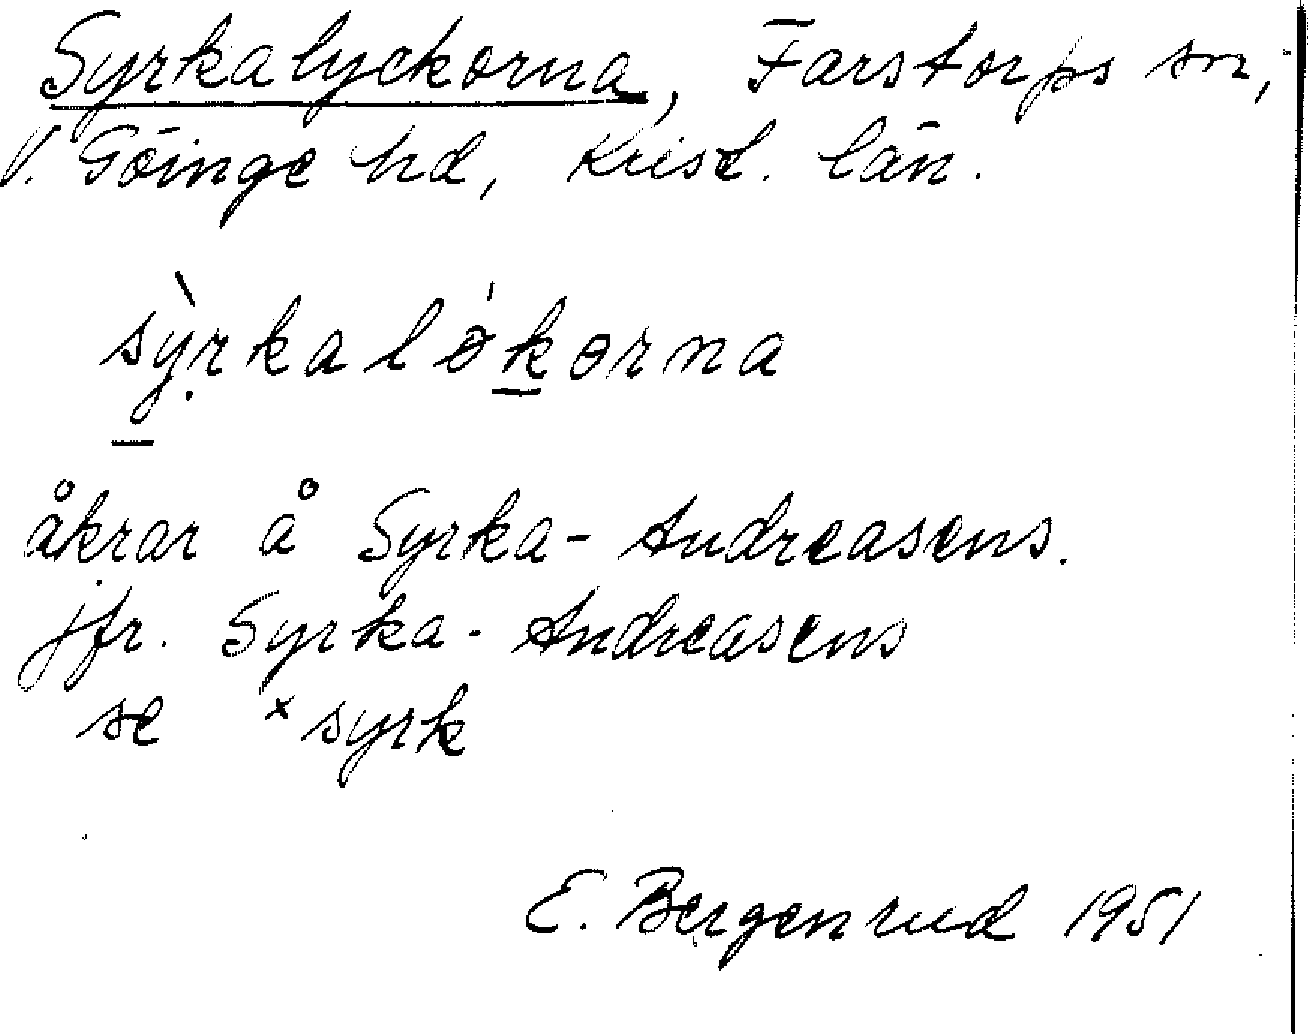 Syrkalyckorna, Farstorps sn,
V. Göinge hd, Krist. län.
sỳrkaló̵korna
åkrar å Syrka-Andreasens.
jfr. Syrka-Andreasens
se ˣsyrk
E. Bergenrud 1951